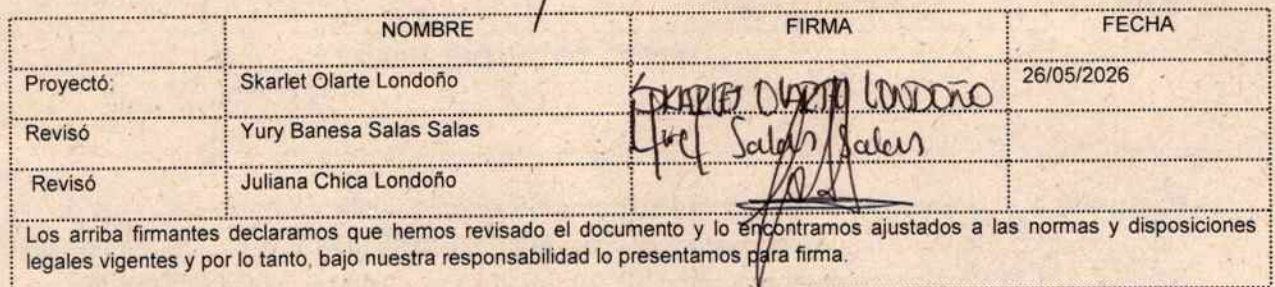 NOMBRE FIRMA FECHA
Proyectó: Skarlet Olarte Londoño SKARLET OLARTE LONDOÑO 26/05/2026
Revisó Yury Banesa Salas Salas Salas Salas
Revisó Juliana Chica Londoño
Los arriba firmantes declaramos que hemos revisado el documento y lo encontramos ajustados a las normas y disposiciones
legales vigentes y por lo tanto, bajo nuestra responsabilidad lo presentamos para firma.